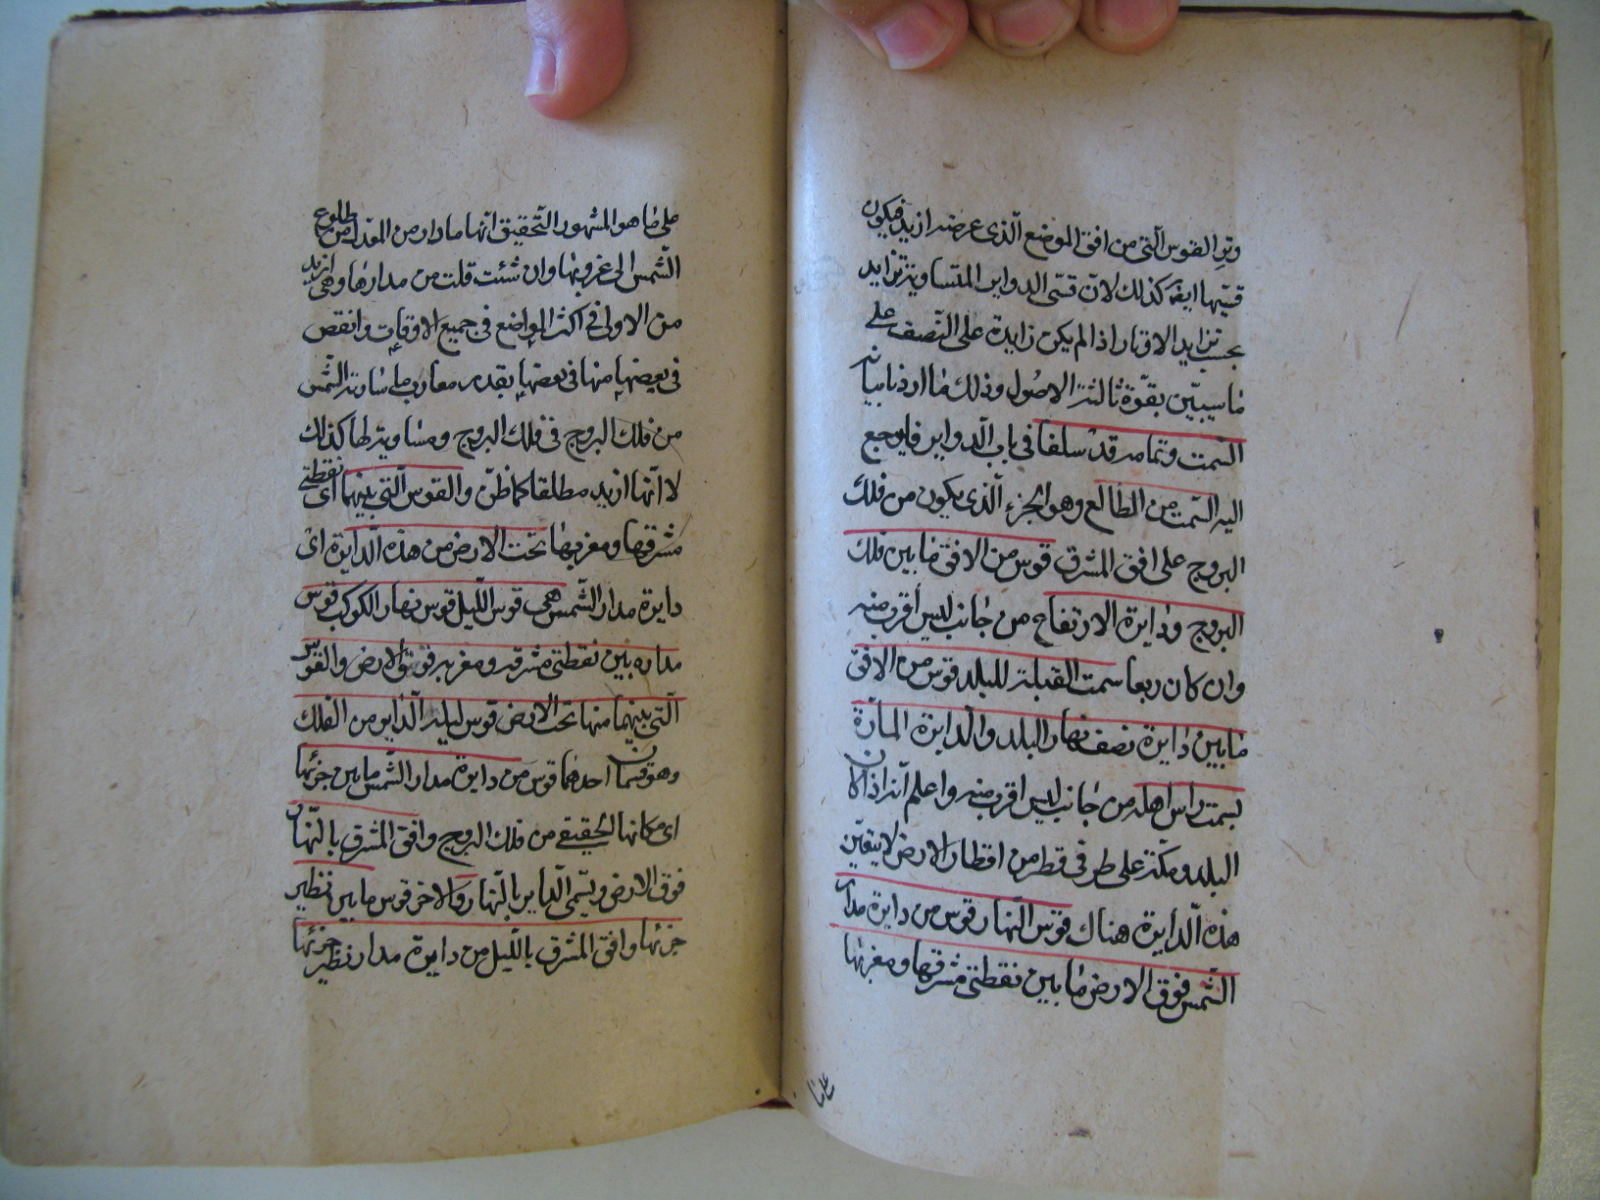 وتر القوس التى من افق الموضع الذى عرضه ازيد فيكون
قسيّها ايضا كذلك لانّ قسّى الدواير المتساوية تزايد
بحسب تزايد الاوتار اذا لم يكن زايدة على النّصف على
ما سيبيّن بقوّة ثالثة الاصول وذلك ما اردنا بيانه
السّمت وتمامه قد سلفا فى باب الدّواير فليرجع
اليه السّمت من الطالع وهو الجزء الّذى يكون من فلك
البروج على افق المشرق قوس من الافق ما بين فلك
البروج ودايرة الارتفاع من جانب ليس اقرب منه
وان كان ربعا سمت القبلة للبلد قوس من الافق
ما بين دايرة نصف نهار البلد والدايرة المارّة
بسمت راس اهله من جانب ليس اقرب منه واعلم انّه اذا كان
البلد ومكّة على طرفى قطر من اقطار الارض لا يتعيّن
هذه الدّايرة هناك قوس النّهار قوس من دايرة مدار
الشّمس فوق الارض ما بين نقطتى مشرقها ومغربها
على ما
على ما هو المشهور والتّحقيق انّها ما دار من المعدل من طلوع
الشّمس الى غروبها وان شئت قلت من مدارها وهى ازيد
من الاولى فى اكثر المواضع فى جميع الاوقات وانقص
فى بعضها منها فى بعضها بقدر مغارب ما سارته الشّمس
من فلك البروج فى فلك البروج ومساوية لها كذلك
لا انّها ازيد مطلقا كما ظنّ والقوس الّتى بينهما اى نقطتى
مشرقها ومغربها تحت الارض من هذه الدّايرة اى
دايرة مدار الشّمس هى قوس اللّيل قوس نهار الكوكب قوس
مداره بين نقطتى مشرقه ومغربه فوق الارض والقوس
الّتى بينهما منها تحت الارض قوس ليله الدّاير من الفلك
وهو قسمان احدهما قوس من دايرة مدار الشّمس ما بين جزئها
اى مكانها الحقيقى من فلك البروج وافق المشرق بالنّهار
فوق الارض ويسمى الدّاير بالنّهار والاخر قوس ما بين نظير
جزئها وافق المشرق باللّيل من دايرة مدار نظير جزئها